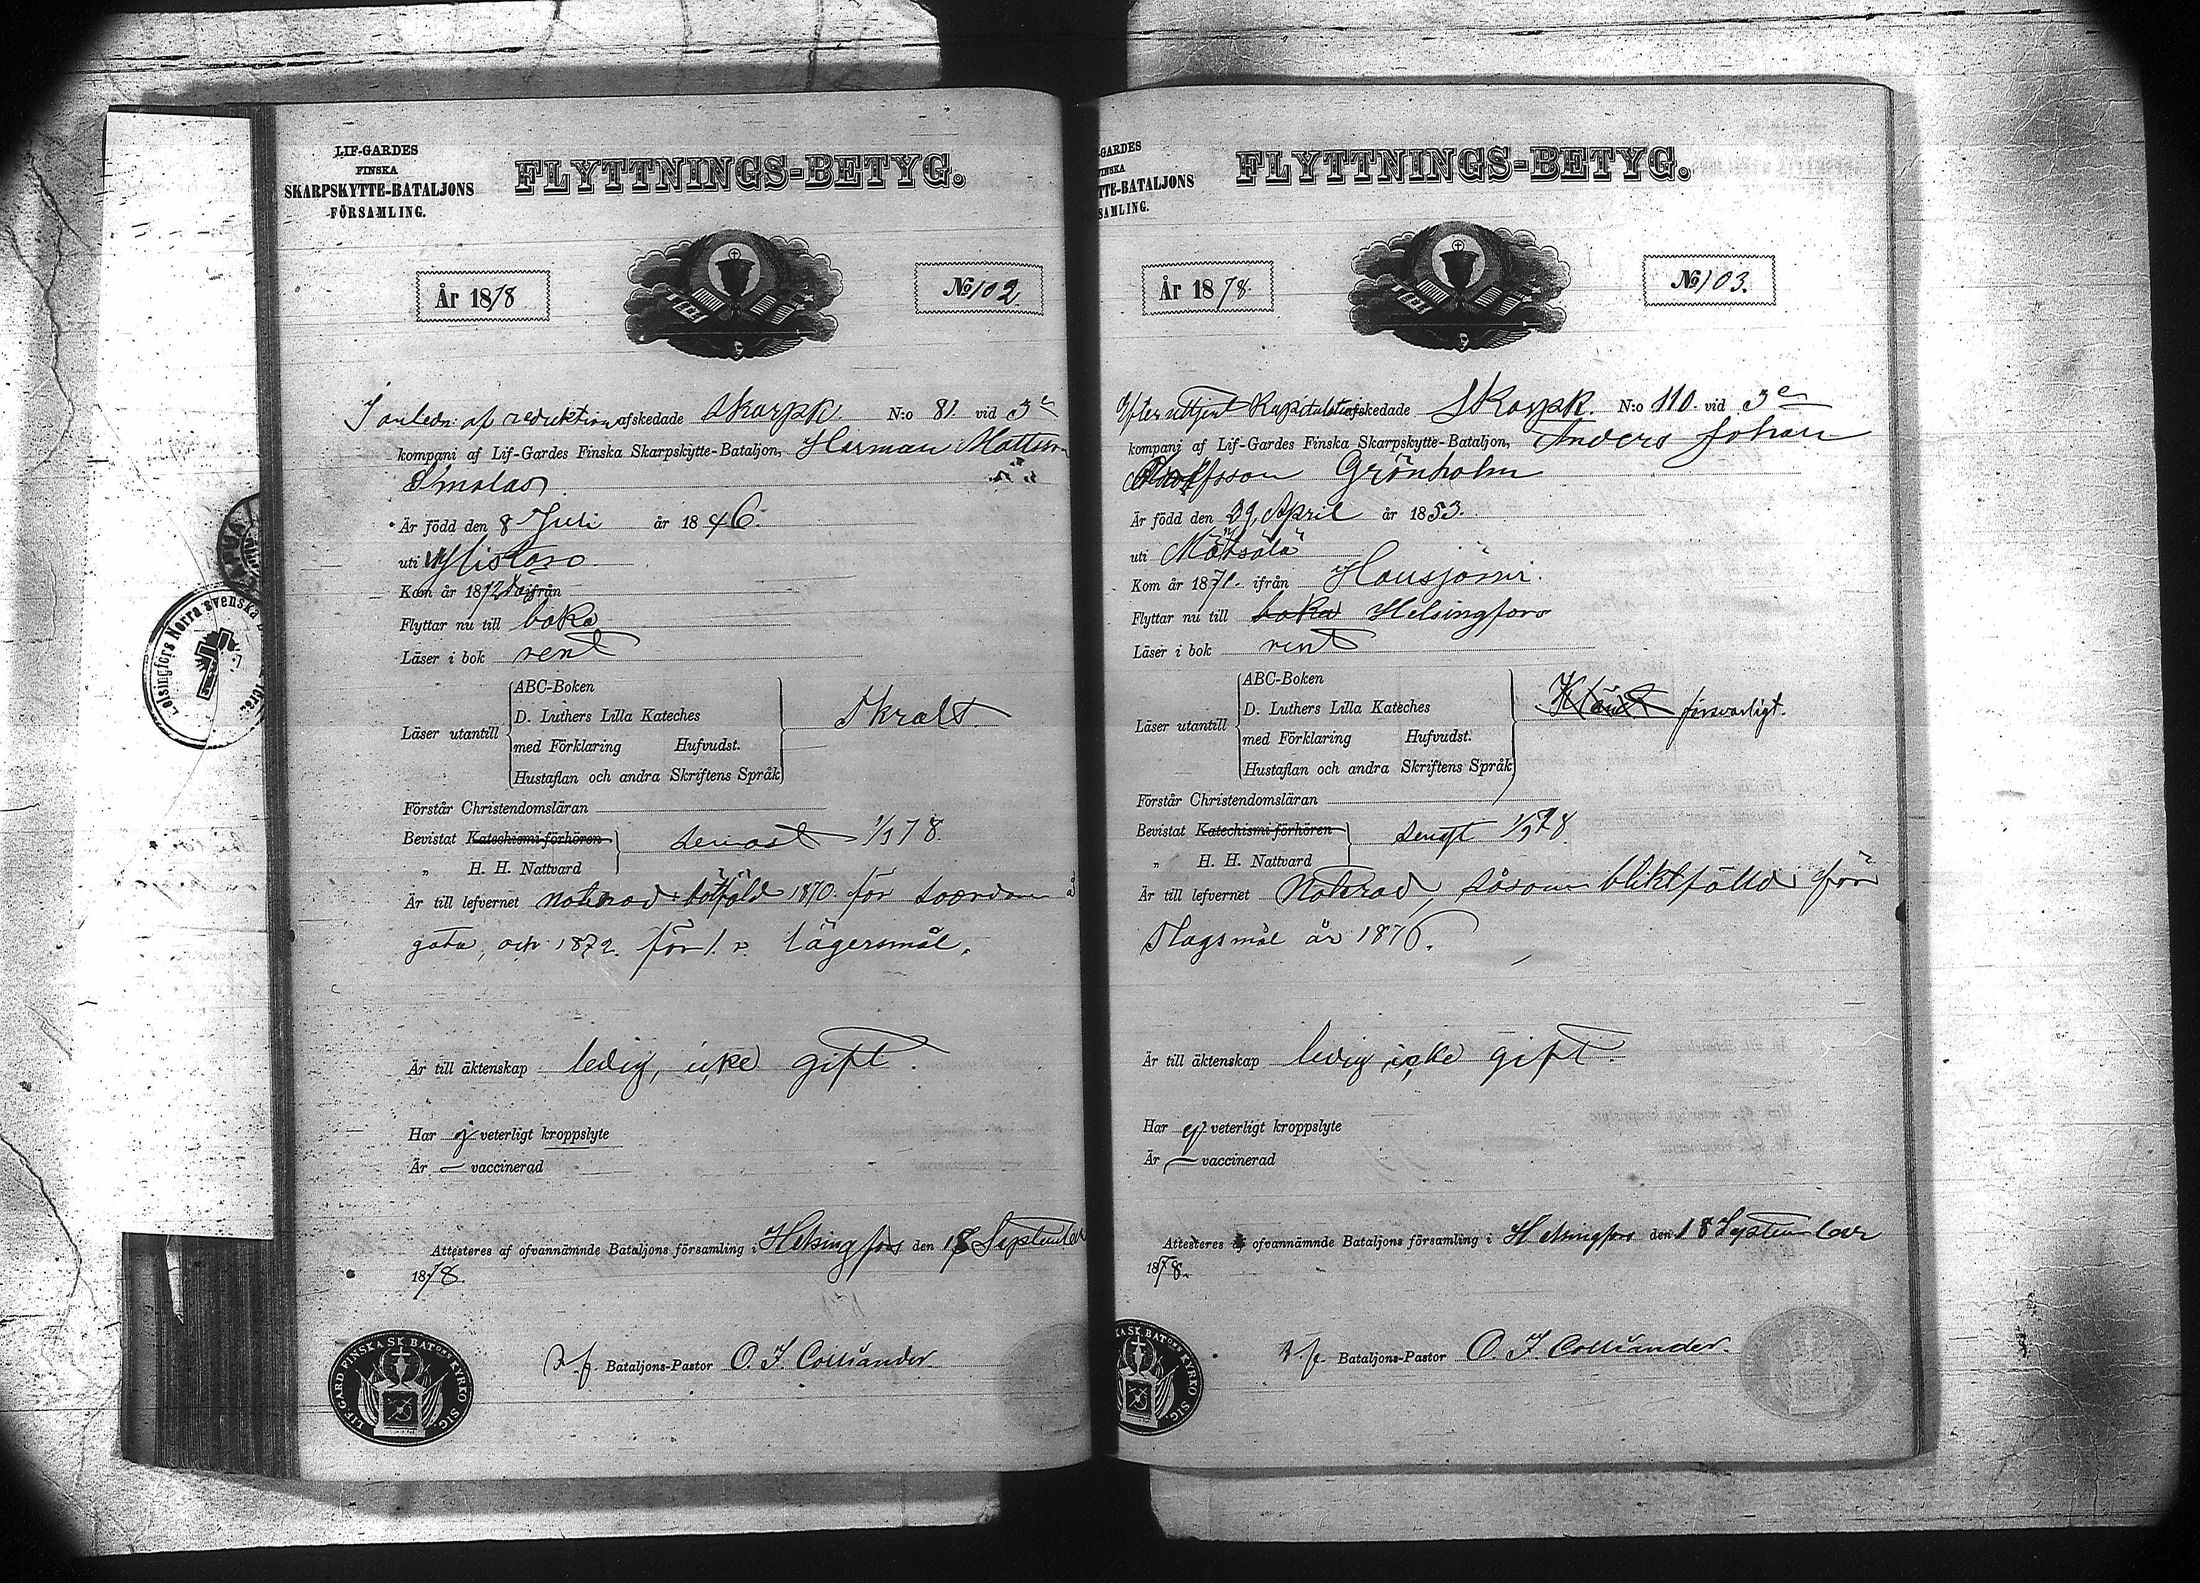 LIF-GARDES
FINSKA
SKARPSKYTTE-BATALJONS
FÖRSAMLING.
FLYTTNINGS-BETYG.
År 1878
No 102
I anledn: af reduktion afskedade Skarpsk. N:o 81. vid 3e
kompani af Lif-Gardes Finska Skarpskytte-Bataljon, Herman Mattson
Smalas
Är född den 8 Juli år 1846.
uti Ylistaro
Kom år 1872 ifrån
Flyttar nu till
Läser i bok rent
ABC-Boken
D. Luthers Lilla Kateches
Läser utantill
med Förklaring Hufvudst.
Hustaflan och andra Skriftens Språk
Förstår Christendomsläran
Bevistat Katechismi-förhören senast 1/9 78.
„ H. H. Nattvard
Är till lefvernet noterad bötfäld 1870. för
gata, och 1872. för 1. r. lägersmål.
Är till äktenskap ledig, icke gift.
Har ej veterligt kroppslyte
Är — vaccinerad
Attesteres af ofvannämnde Bataljons församling i Helsingfors den 18 September
1878.
v. f. Bataljons-Pastor O. I. Colliander.
LIF-GARD FINSKA SK. BAT:ONS KYRKO SIG.
Helsingfors Norra svenska
GARDES
FINSKA
TTE-BATALJONS
SAMLING.
FLYTTNINGS-BETYG.
År 1878.
No 103.
Efter uttjent Kapitulation afskedade Skarpsk. N:o 110. vid 3e
kompani af Lif-Gardes Finska Skarpskytte-Bataljon, Anders Johan
Grönholm
Är född den 29 April år 1853.
uti Mäntsälä
Kom år 1871. ifrån Hausjärvi.
Flyttar nu till Helsingfors
Läser i bok rent
ABC-Boken
D. Luthers Lilla Kateches
Läser utantill försvarligt.
med Förklaring Hufvudst.
Hustaflan och andra Skriftens Språk
Förstår Christendomsläran
Bevistat Katechismi-förhören senast 1/9 78.
„ H. H. Nattvard
Är till lefvernet Noterad, såsom pliktfälld för
slagsmål år 1876.
Är till äktenskap ledig, icke gift.
Har ej veterligt kroppslyte
Är — vaccinerad
Attesteres af ofvannämnde Bataljons församling i Helsingfors den 18 September
1878.
v. f. Bataljons-Pastor O. I. Colliander.
KA SK. BAT:ONS KYRKO SIG.